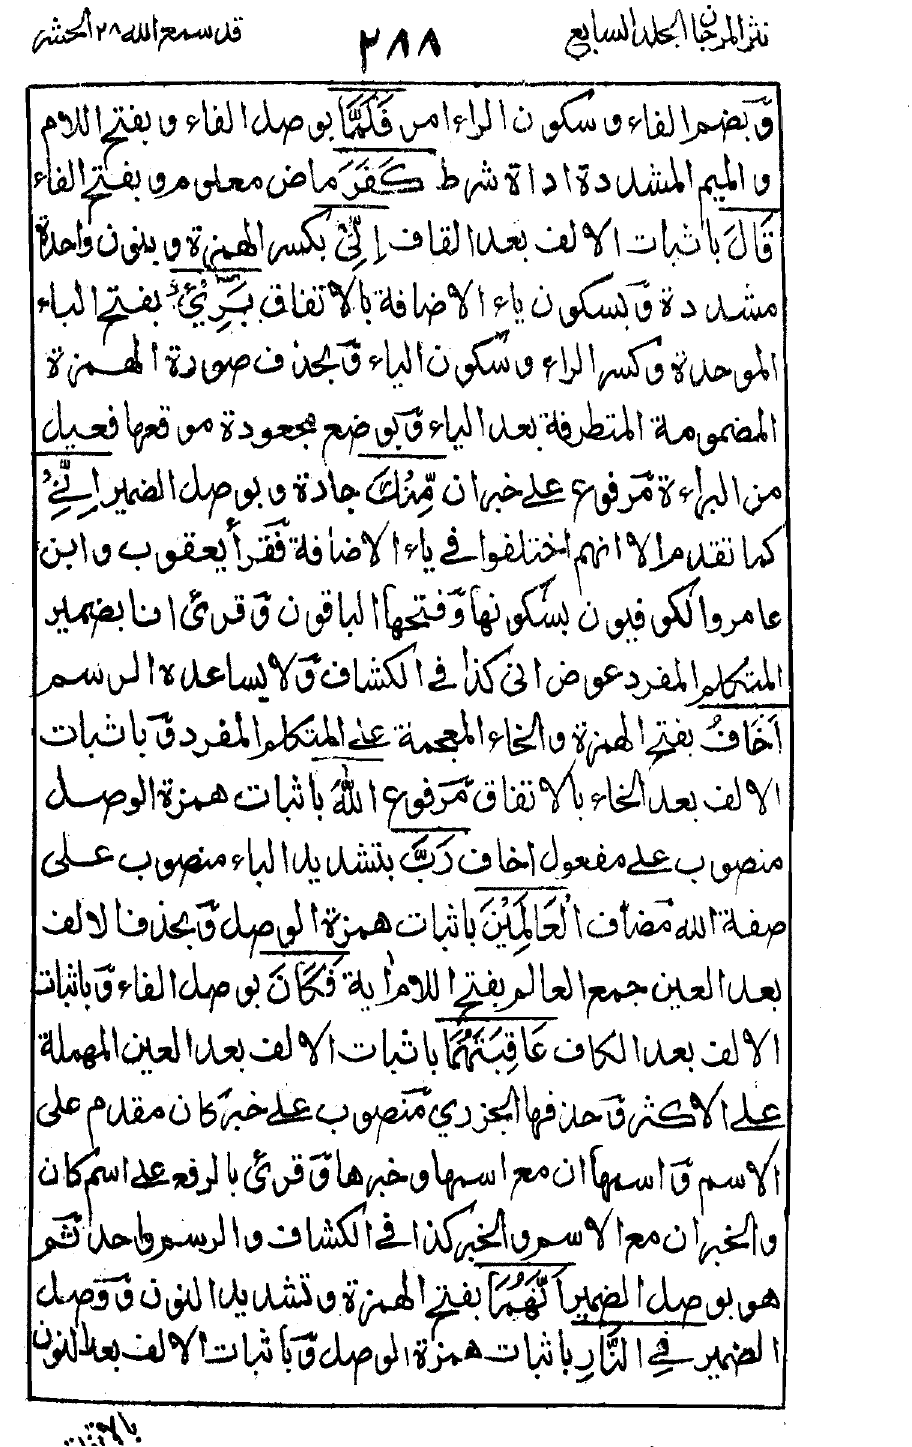 نثر المرجان الجلد السابع
٢٨٨
قد سمع الله ٢٨ الحشر
وبضم الفاء وسكون الراء امر فَلَمَّا بوصل الفاء وبفتح اللام
والميم المشددة اداة شرط كَفَرَ ماض معلوم وبفتح الفاء
قَالَ باثبات الالف بعد القاف إِنِّىْ بكسر الهمزة وبنون واحدة
مشددة وبسكون ياء الاضافة بالاتفاق بَرِيْءٌ بفتح الباء
الموحدة وكسر الراء وسكون الياء وبحذف صورة الهمزة
المضمومة المتطرفة بعد الياء وبوضع مجعودة موقعها فعيل
من البراءة مرفوع على خبر ان مِّنْكَ جادة وبوصل الضمير اِنِّيْ
كما تقدم الا انهم اختلفوا في ياء الاضافة فقرأ يعقوب وابن
عامر والكوفيون بسكونها وفتحها الباقون وقرئ انا بضمير
المتكلم المفرد عوض انى كذا في الكشاف ولا يساعده الرسم
اَخَافُ بفتح الهمزة والخاء المعجمة على المتكلم المفرد وباثبات
الالف بعد الخاء بالاتفاق مرفوع اللهَ باثبات همزة الوصل
منصوب على مفعول اخاف رَبَّ بتشديد الباء منصوب على
صفة الله مضاف الْعَالَمِيْنَ باثبات همزة الوصل وبحذف الالف
بعد العين جمع العالم بفتح اللام اية فَكَانَ بوصل الفاء وباثبات
الالف بعد الكاف عَاقِبَتَهُمَا باثبات الالف بعد العين المهملة
على الاكثر وحذفها الجزري منصوب على خبر كان مقدم على
الاسم واسمها ان مع اسمها وخبرها وقرئ بالرفع على اسم كان
والخبر ان مع الاسم والخبر كذا في الكشاف والرسم واحد ثم
هو بوصل الضمير اَنَّهُمَا بفتح الهمزة وتشديد النون ووصل
الضمير فِي النَّارِ باثبات همزة الوصل وباثبات الالف بعد النون
بالاتفاق